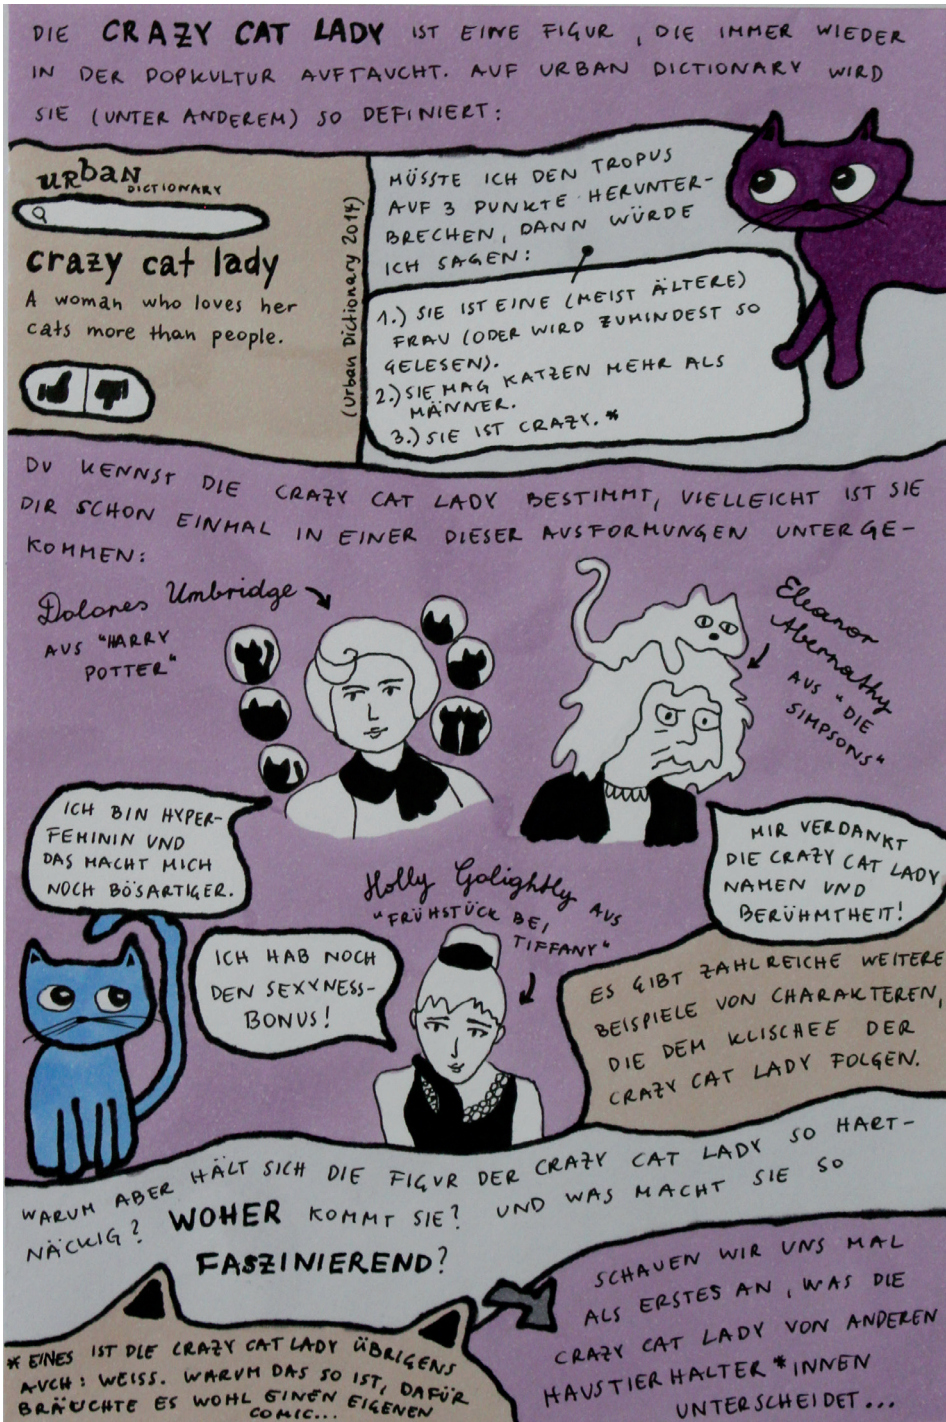 DIE CRAZY CAT LADY IST EINE FIGUR, DIE IMMER WIEDER
IN DER POPKULTUR AUFTAUCHT. AUF URBAN DICTIONARY WIRD
SIE (UNTER ANDEREM) SO DEFINIERT:
URBAN
DICTIONARY
crazy cat lady
A woman who loves her
cats more than people.
(Urban Dictionary 2017)
MÜSSTE ICH DEN TROPUS
AUF 3 PUNKTE HERUNTER-
BRECHEN, DANN WÜRDE
ICH SAGEN:
1.) SIE IST EINE (MEIST ÄLTERE)
FRAU (ODER WIRD ZUMINDEST SO
GELESEN).
2.) SIE MAG KATZEN MEHR ALS
MÄNNER.
3.) SIE IST CRAZY.*
DU KENNST DIE CRAZY CAT LADY BESTIMMT, VIELLEICHT IST SIE
DIR SCHON EINMAL IN EINER DIESER AUSFORMUNGEN UNTERGE-
KOMMEN:
Dolores Umbridge
AUS "HARRY
POTTER"
Eleanor
Abernathy
AUS "DIE
SIMPSONS"
ICH BIN HYPER-
FEMININ UND
DAS MACHT MICH
NOCH BÖSARTIGER.
MIR VERDANKT
DIE CRAZY CAT LADY
NAMEN UND
BERÜHMTHEIT!
Holly Golightly AUS
"FRÜHSTÜCK BEI
TIFFANY"
ICH HAB NOCH
DEN SEXYNESS-
BONUS!
ES GIBT ZAHLREICHE WEITERE
BEISPIELE VON CHARAKTEREN,
DIE DEM KLISCHEE DER
CRAZY CAT LADY FOLGEN.
WARUM ABER HÄLT SICH DIE FIGUR DER CRAZY CAT LADY SO HART-
NÄCKIG? WOHER KOMMT SIE? UND WAS MACHT SIE SO
FASZINIEREND?
SCHAUEN WIR UNS MAL
ALS ERSTES AN, WAS DIE
CRAZY CAT LADY VON ANDEREN
HAUSTIERHALTER*INNEN
UNTERSCHEIDET...
* EINES IST DIE CRAZY CAT LADY ÜBRIGENS
AUCH: WEISS. WARUM DAS SO IST, DAFÜR
BRÄUCHTE ES WOHL EINEN EIGENEN
COMIC...